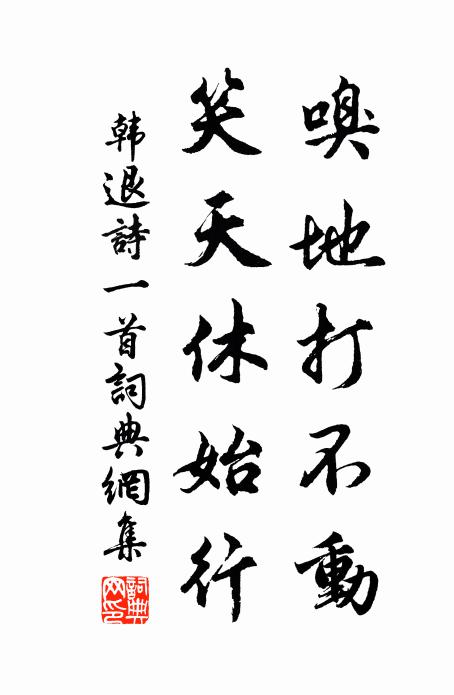 嗅地打不動
笑天休始行
韩退詩一首詞典網集
詞典網印